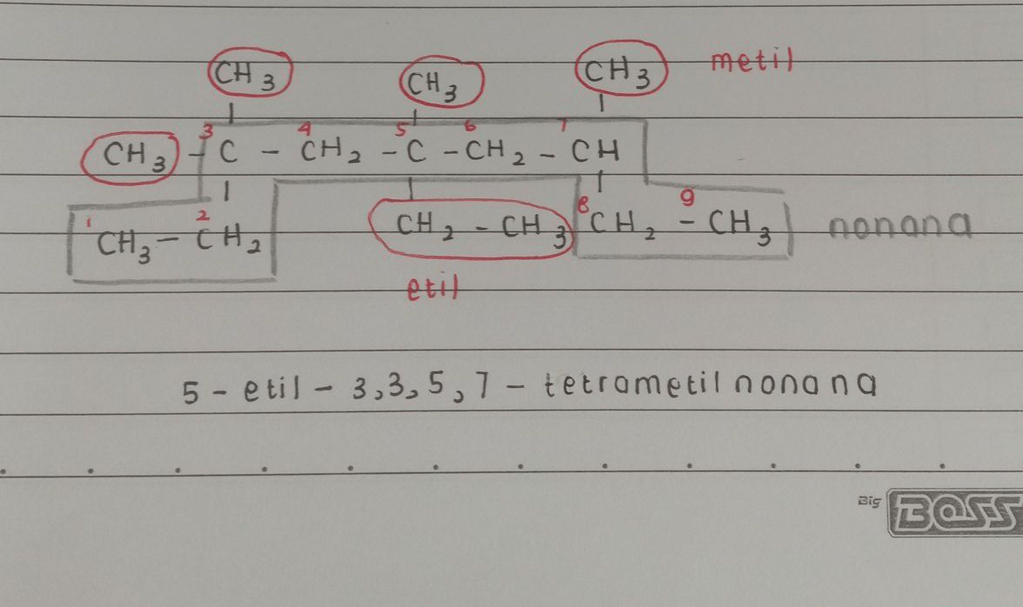 CH3 CH3 CH3 metil
3 4 5 6 7
CH3 - C - CH2 - C - CH2 - CH
1 2 8 9
CH3 - CH2 CH2 - CH3 CH2 - CH3 nonana
etil
5 - etil - 3,3,5,7 - tetrametil nonana
Big BOSS